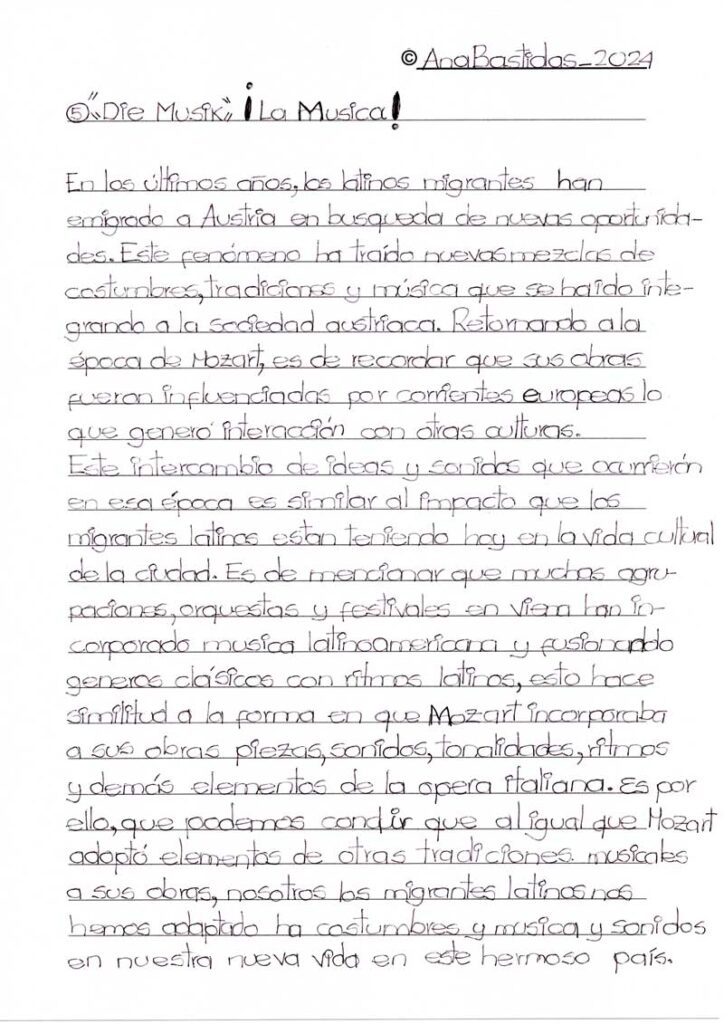 © AnaBastidas_2024
⑤ "Die Musik" ¡La Musica!
En los últimos años, los latinos migrantes han
emigrado a Austria en busqueda de nuevas oportunida-
des. Este fenómeno ha traído nuevas mezclas de
costumbres, tradiciones y música que se ha ido inte-
grando a la sociedad austríaca. Retornando a la
época de Mozart, es de recordar que sus obras
fueron influenciadas por corrientes europeas lo
que generó interacción con otras culturas.
Este intercambio de ideas y sonidos que ocurrierón
en esa época es similar al impacto que los
migrantes latinos estan teniendo hoy en la vida cultural
de la ciudad. Es de mencionar que muchas agru-
paciones, orquestas y festivales en viena han in-
corporado musica latinoamericana y fusionando
generos clásicos con ritmos latinos, esto hace
similitud a la forma en que Mozart incorporaba
a sus obras piezas, sonidos, tonalidades, ritmos
y demás elementos de la opera italiana. Es por
ello, que podemos concluir que al igual que Mozart
adoptó elementos de otras tradiciones musicales
a sus obras, nosotros los migrantes latinos nos
hemos adaptado ha costumbres y musica y sonidos
en nuestra nueva vida en este hermoso país.